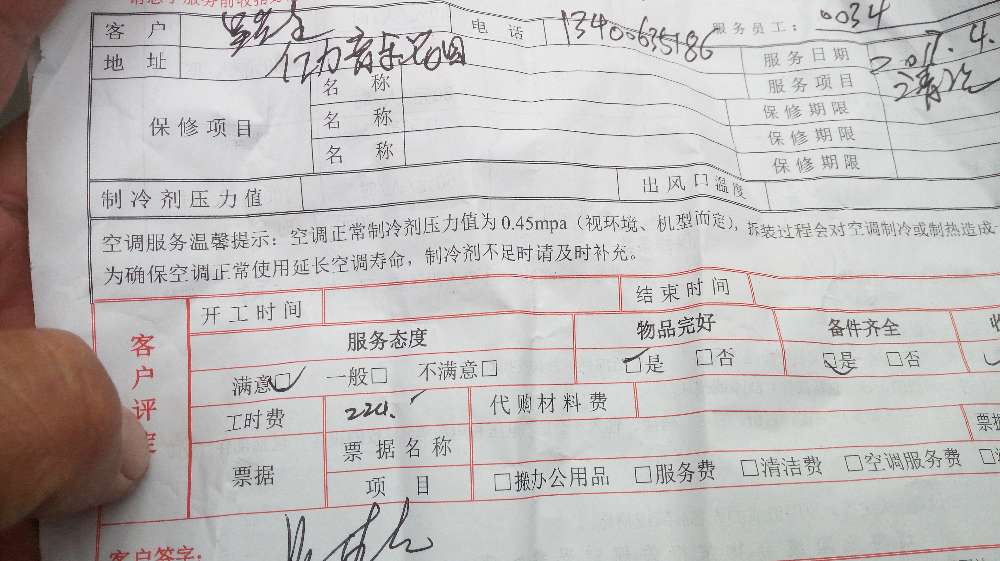 客户 电话 13400635186 服务员工: 0034
地址 亿力音乐花园 服务日期 2017.4.
保修项目 名称 服务项目 清洗
名称 保修期限
名称 保修期限
保修期限
制冷剂压力值 出风口温度
空调服务温馨提示：空调正常制冷剂压力值为0.45mpa（视环境、机型而定），拆装过程会对空调制冷或制热造成
为确保空调正常使用延长空调寿命，制冷剂不足时请及时补充。
客户评定 开工时间 结束时间
服务态度 物品完好 备件齐全
满意□ 一般□ 不满意□ □是 □否 □是 □否
工时费 224. 代购材料费
票据 票据名称 票据
项目 □搬办公用品 □服务费 □清洁费 □空调服务费
客户签字: